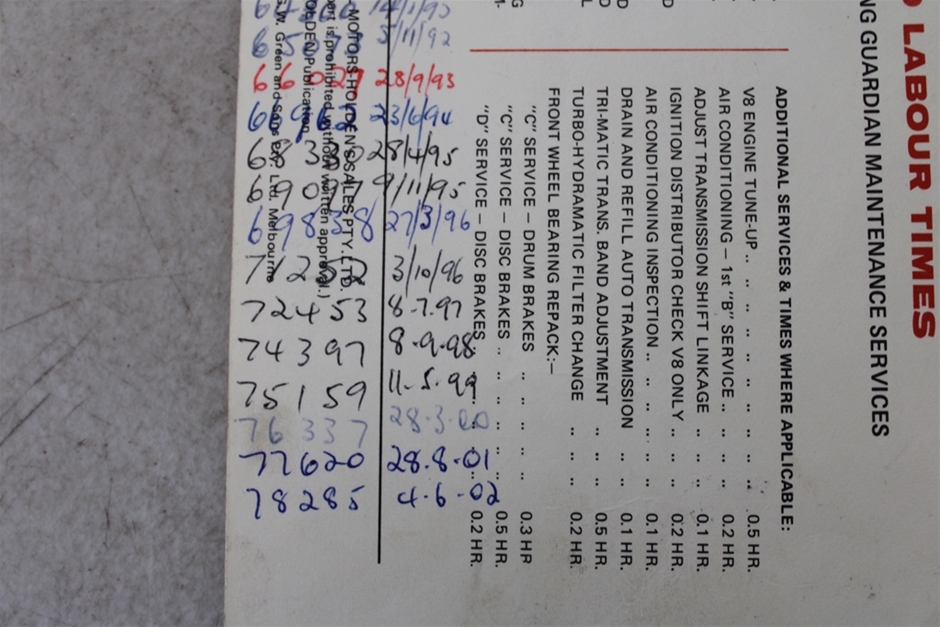 LABOUR TIMES
NG GUARDIAN MAINTENANCE SERVICES
ADDITIONAL SERVICES & TIMES WHERE APPLICABLE:
V8 ENGINE TUNE-UP .. .. .. .. .. .. .. .. 0.5 HR.
AIR CONDITIONING – 1st "B" SERVICE .. .. .. 0.2 HR.
ADJUST TRANSMISSION SHIFT LINKAGE .. .. 0.1 HR.
IGNITION DISTRIBUTOR CHECK V8 ONLY .. .. 0.2 HR.
AIR CONDITIONING INSPECTION .. .. .. .. .. 0.1 HR.
DRAIN AND REFILL AUTO TRANSMISSION .. .. 0.1 HR.
TRI-MATIC TRANS. BAND ADJUSTMENT .. .. 0.5 HR.
TURBO-HYDRAMATIC FILTER CHANGE .. .. .. 0.2 HR.
FRONT WHEEL BEARING REPACK:–
"C" SERVICE – DRUM BRAKES .. .. .. .. .. 0.3 HR
"C" SERVICE – DISC BRAKES .. .. .. .. .. 0.5 HR.
"D" SERVICE – DISC BRAKES 0.2 HR.
MOTORS-HOLDEN'S SALES PTY. LTD.
is prohibited without written approval.)
Publication
W. Green and Sons Pty. Ltd. Melbourne
5/11/92
66027 28/9/93
23/6/94
28/4/95
9/11/95
69838 27/3/96
3/10/96
72453 8-7.97
74397 8-9-98
75159 11.5.99
76337 28-3-00
77620 28.8.01
78285 4-6-02